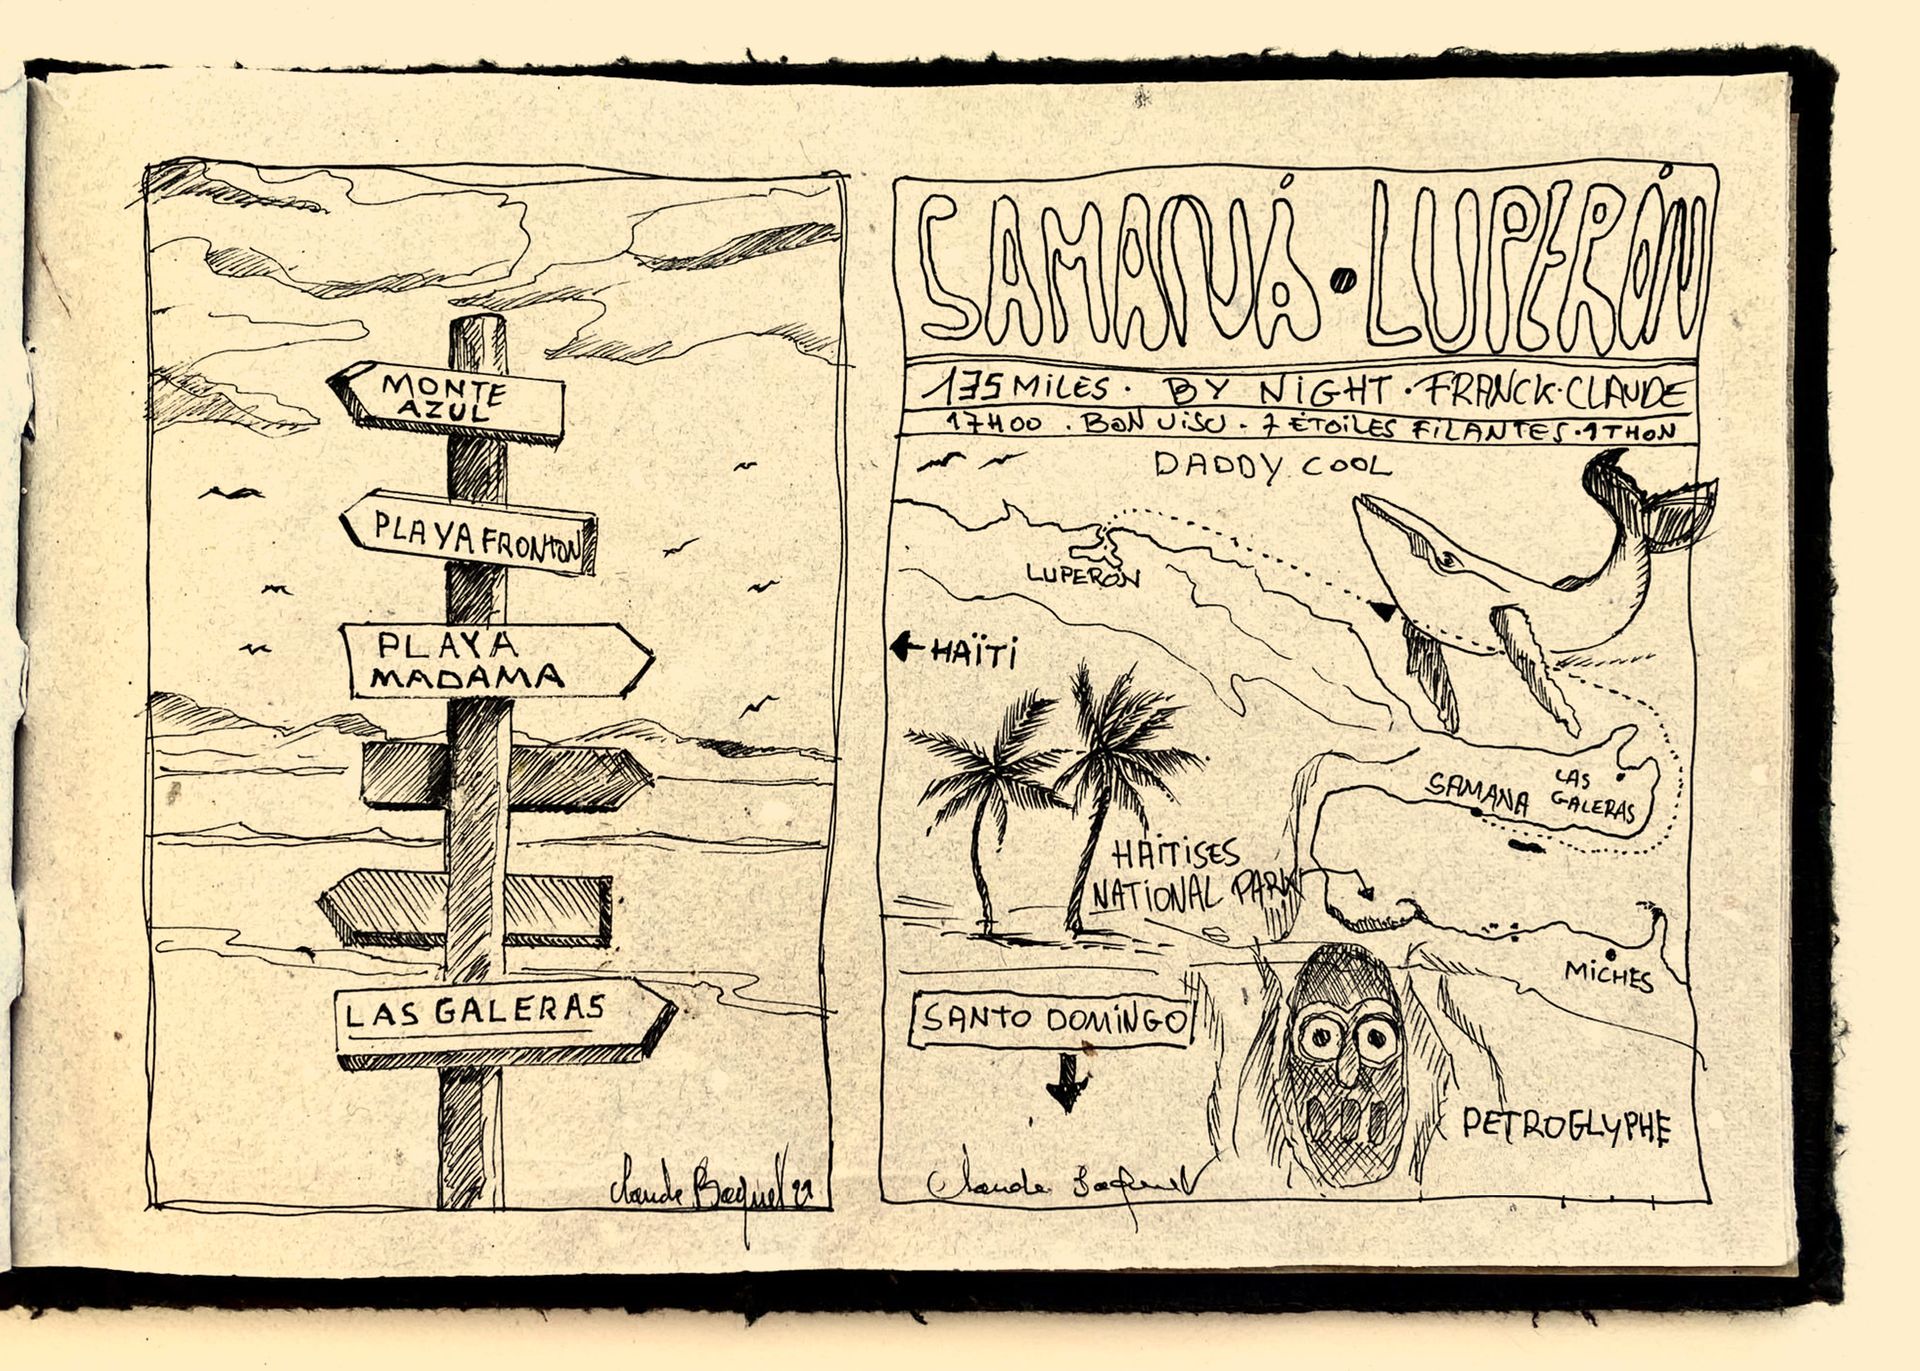 MONTE
AZUL
PLAYA FRONTON
PLAYA
MADAMA
LAS GALERAS
Claude Baquet 22
SAMANÁ • LUPERÓN
175 MILES · BY NIGHT · FRANCK · CLAUDE
17H00 . BON VISU - 7 ÉTOILES FILANTES · 1 THON
DADDY COOL
LUPERÓN
HAÏTI
SAMANA
LAS
GALERAS
HAÏTISES
NATIONAL PARK
MICHES
SANTO DOMINGO
PETROGLYPHE
Claude Baquet